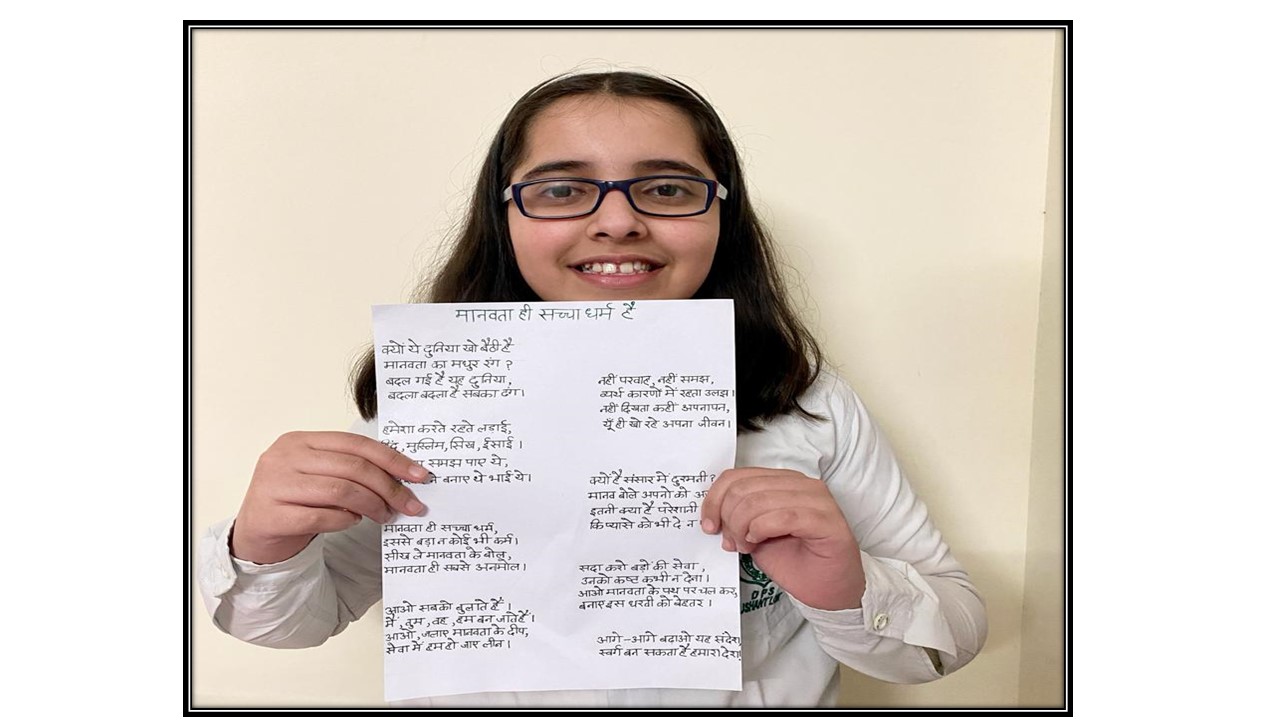 मानवता ही सच्चा धर्म है
क्यों ये दुनिया खो बैठी है
मानवता का मधुर रंग ?
बदल गई है यह दुनिया,
बदला बदला है सबका ढंग।
हमेशा करते रहते लड़ाई,
मुस्लिम, सिख, ईसाई ।
समझ पाए ये,
बनाए थे भाई ये।
मानवता ही सच्चा धर्म,
इससे बड़ा न कोई भी कर्म।
सीख ले मानवता के बोल,
मानवता ही सबसे अनमोल।
आओ सबको बुलाते हैं ।
मैं, तुम, वह, हम बन जाते हैं ।
आओ, जलाए मानवता के दीप,
सेवा में हम हो जाए लीन ।
नहीं परवाह, नहीं समझ,
व्यर्थ कारणों में रहता उलझ।
नहीं दिखता कहीं अपनापन,
यूँ ही खो रहे अपना जीवन।
क्यों है संसार में दुश्मनी ?
मानव बोले अपनो को
इतनी क्या है परेशानी
कि प्यासे को भी दे न
सदा करो बड़ों की सेवा ,
उनको कष्ट कभी न देना।
आओ मानवता के पथ पर चल कर,
बनाए इस धरती को बेहतर ।
आगे-आगे बढ़ाओ यह संदेश
स्वर्ग बन सकता है हमारा देश
DPS